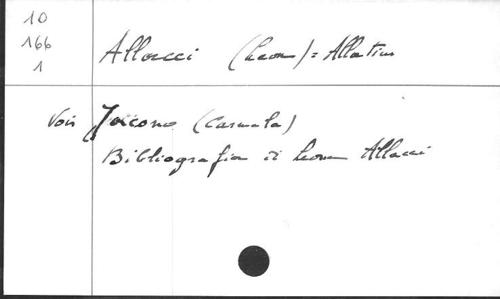 10
166
1
Allacci (Leone) = Allatius
Voir Jacono (Carmela)
Bibliografia di Leone Allacci